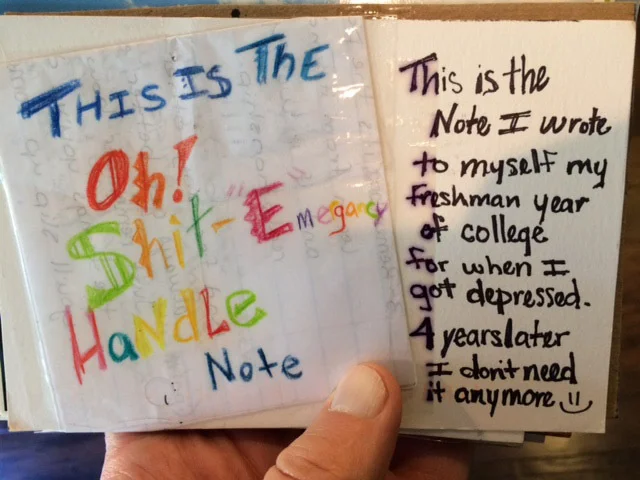 THIS IS ThE
Oh!
Shit-"E"megarcy
HaNdLe
Note
This is the
Note I wrote
to myself my
freshman year
of college
for when I
got depressed.
4 years later
I don't need
it anymore